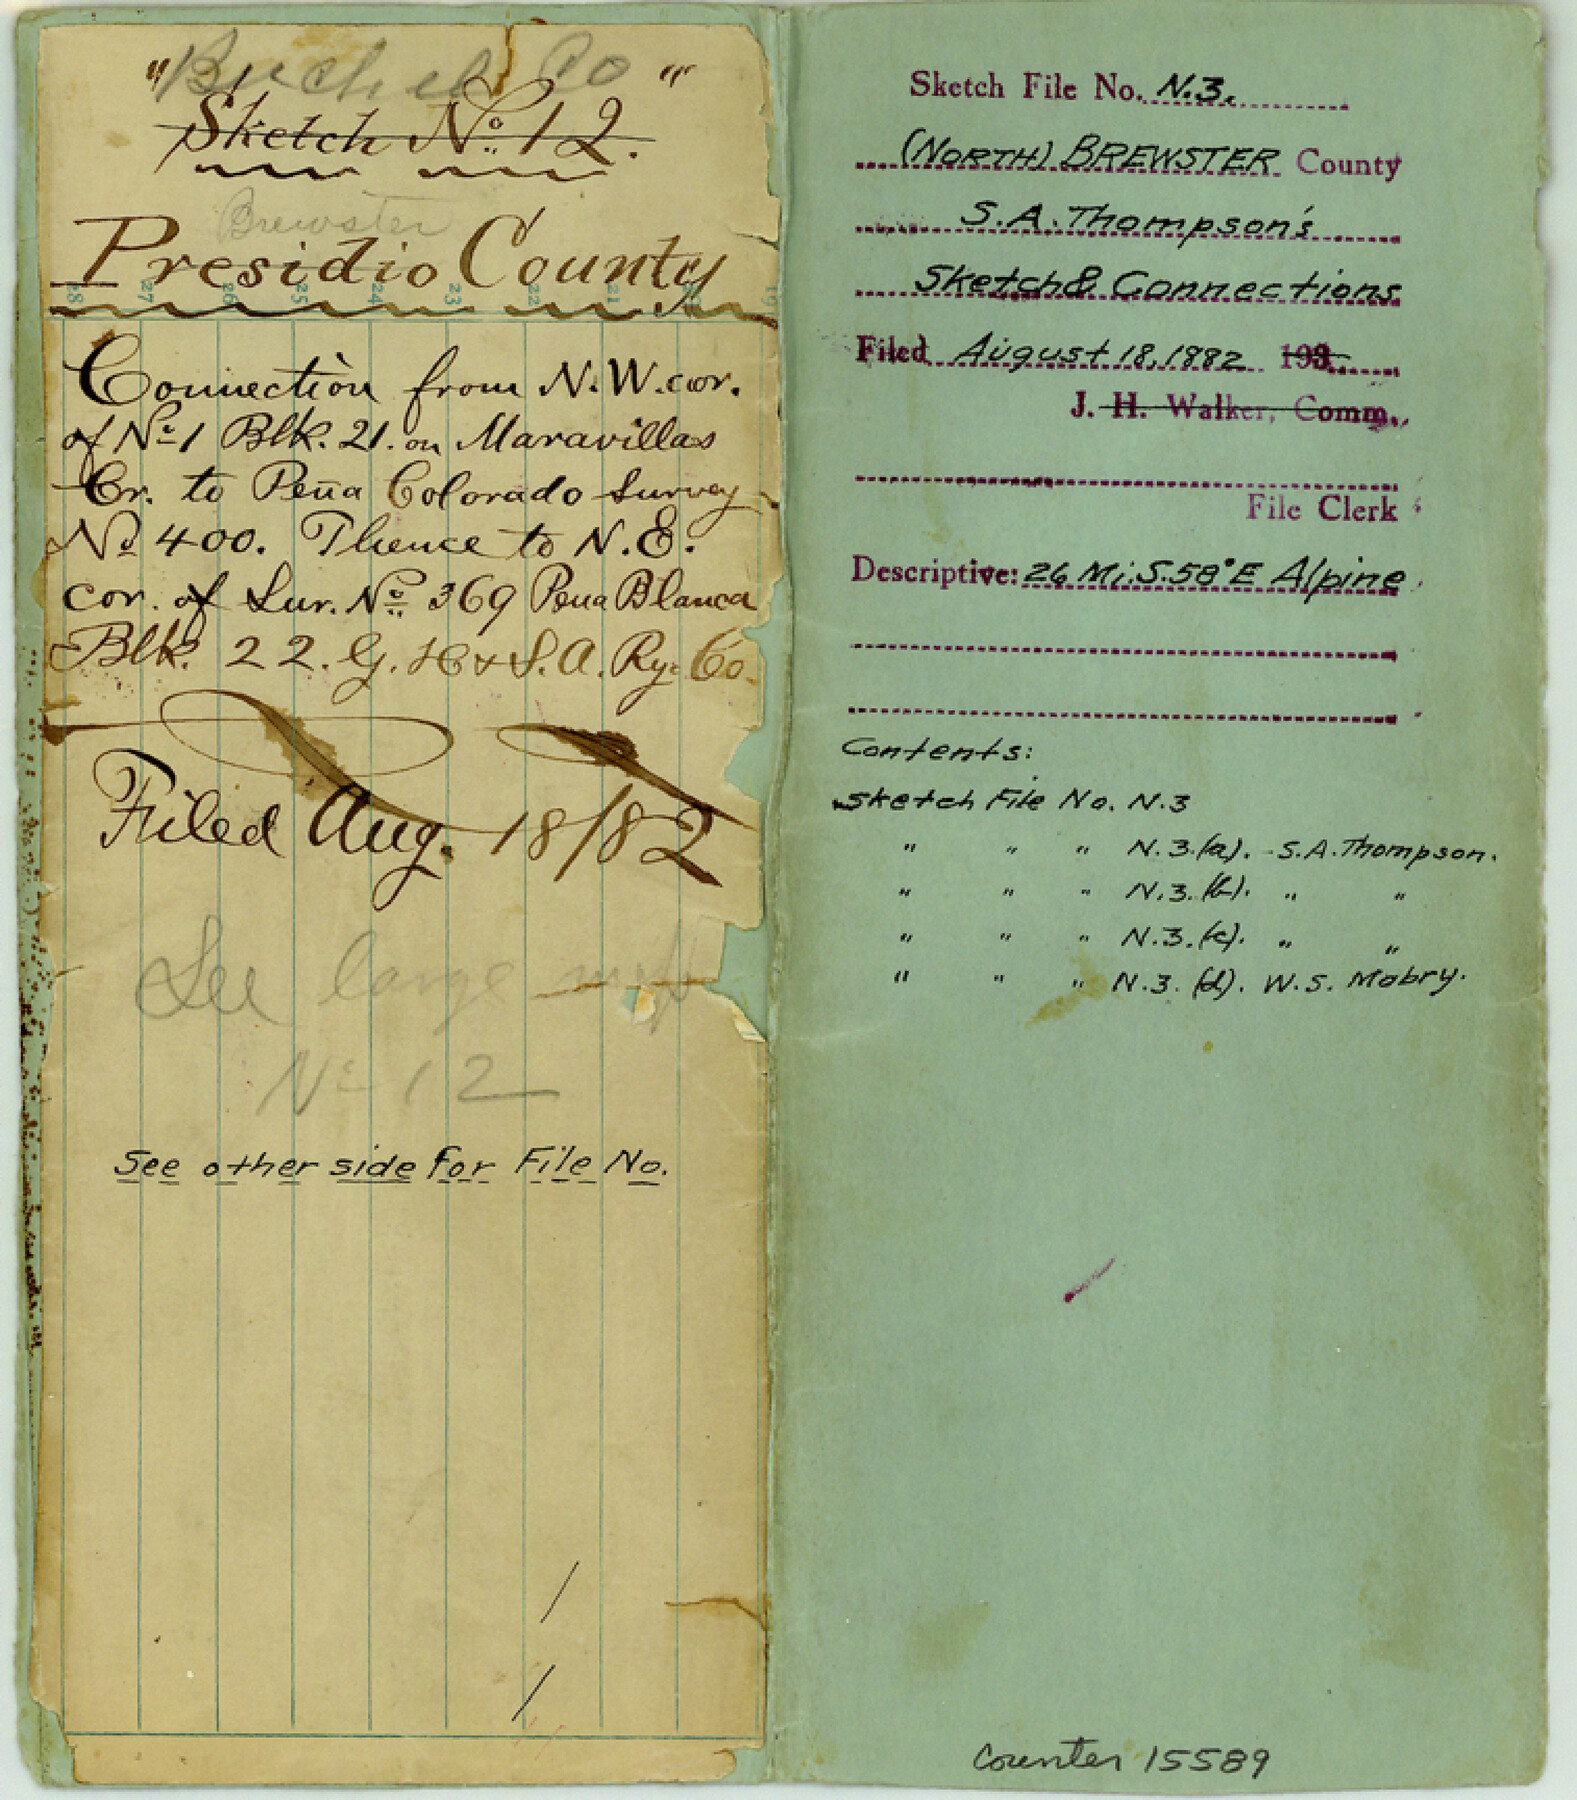 "Buchel Co"
Sketch No. 12.
Brewster
Presidio County
28 27 26 25 24 23 22 21 19
Connection from N.W. cor.
of No. 1 Blk. 21. on Maravillas
Cr. to Peña Colorado Survey
No. 400. Thence to N.E.
cor. of Sur. No. 369 Pena Blanca
Blk. 22. G. H & S. A. Ry. Co.
Filed Aug. 18/82
See large map
No 12
See other side for File No.
Sketch File No. N.3.
(NORTH) BREWSTER County
S.A. Thompson's
Sketch & Connections
Filed August 18, 1882 193
J. H. Walker, Comm.
File Clerk
Descriptive: 26 Mi. S. 58° E Alpine
Contents:
Sketch File No. N.3
" " " N.3.(a). S.A. Thompson.
" " " N.3.(b). " "
" " " N.3.(c). " "
" " " N.3.(d). W.S. Mabry.
Counter 15589